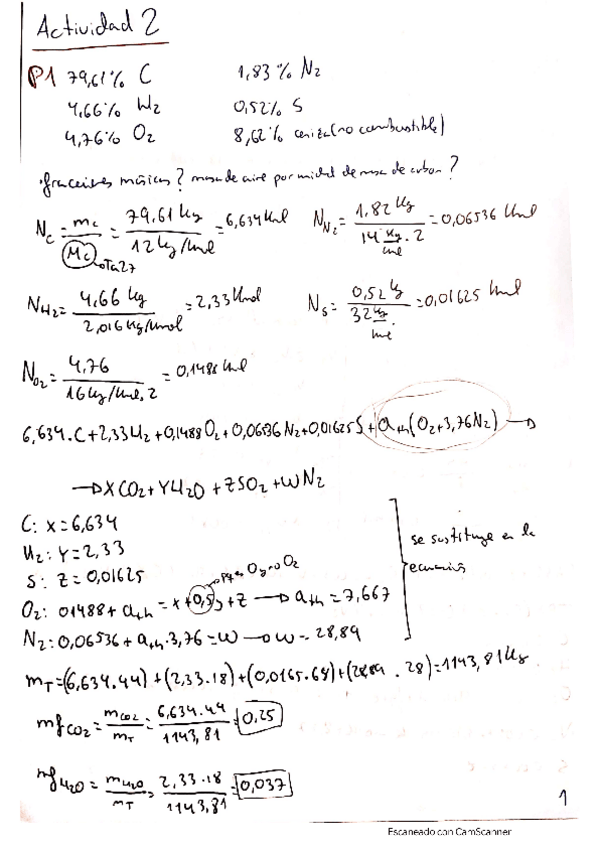 Actividad 2
P1 79,61% C 1,83% N2
4,66% H2 0,52% S
4,76% O2 8,62% ceniza (no combustible)
fracciones másicas? masa de aire por unidad de masa de carbon?
N_C = m_C / M_C = 79,61 kg / 12 kg/kmol = 6,634 kmol N_N2 = 1,82 kg / 14 kg/kmol . 2 = 0,06536 kmol
Ta27
N_H2 = 4,66 kg / 2,016 kg/kmol = 2,33 kmol N_S = 0,52 kg / 32 kg/kmol = 0,01625 kmol
N_O2 = 4,76 / 16 kg/kmol . 2 = 0,1488 kmol
6,634 . C + 2,33 H2 + 0,1488 O2 + 0,06536 N2 + 0,01625 S + a_th (O2 + 3,76 N2) →
→ XCO2 + YH2O + ZSO2 + WN2
C: x = 6,634
H2: Y = 2,33
S: Z = 0,01625
O y no O2
O2: 01488 + a_th = x + 0,5y + z → a_th = 7,667
N2: 0,06536 + a_th . 3,76 = w → w = 28,89
se sustituye en la
ecuación
m_T = (6,634 . 44) + (2,33 . 18) + (0,0165 . 64) + (28,89 . 28) = 1143,81 kg
mf_CO2 = m_CO2 / m_T = 6,634 . 44 / 1143,81 = 0,25
mf_H2O = m_H2O / m_T = 2,33 . 18 / 1143,81 = 0,037
1
Escaneado con CamScanner